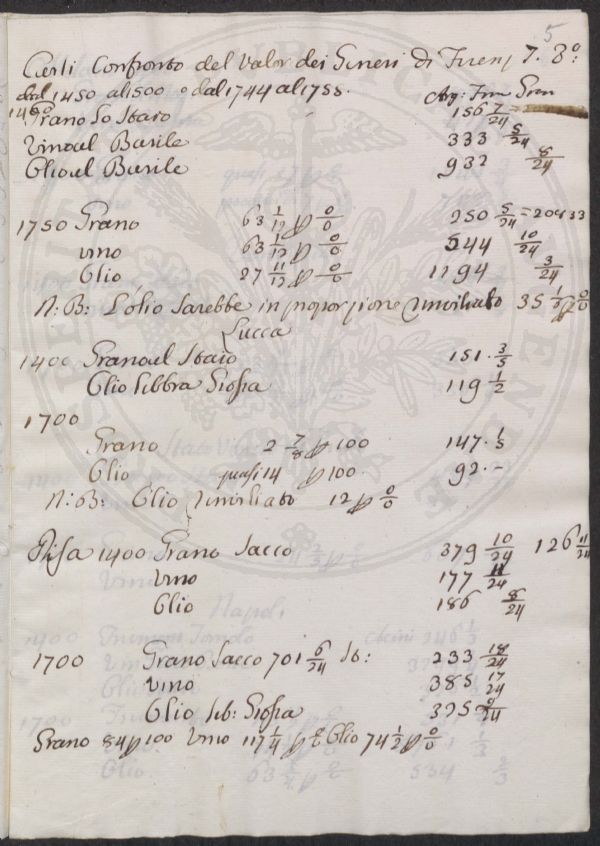 5
Certi Confronto del Valor dei Generi di Firenze T. 3º:
dal 1450 al 1500 o dal 1744 al 1755. Arg: Fin Gran
1400
Grano Lo Staro 156 7/24
Vino al Barile 333 5/24
Olio al Barile 932 8/24
1750 Grano 63 1/12 p 0/0 250 5/24 = 20833
Vino 63 1/12 p 0/0 544 10/24
Olio 27 11/12 p 0/0 1194 3/24
N: B: L'olio Sarebbe in proporzione Umiliato 35 1/3 p 0/0
Lucca
1400 Grano al Staro 151. 3/5
Olio Libbra Grossa 119 1/2
1700
Grano 2 7/8 p 100 147. 1/5
Olio quasi 14 p 100 92. -
N: B: Olio Umiliato 12 p 0/0
Pisa 1400 Grano Sacco 379 10/24 126 11/24
Vino 177 11/24
Olio 186 8/24
1700 Grano Sacco 701 6/24 St: 233 18/24
Vino 385 17/24
Olio Lib: Grossa 325 9/24
Grano 84 p 100 Vino 117 1/4 p 0/0 Olio 74 1/2 p 0/0